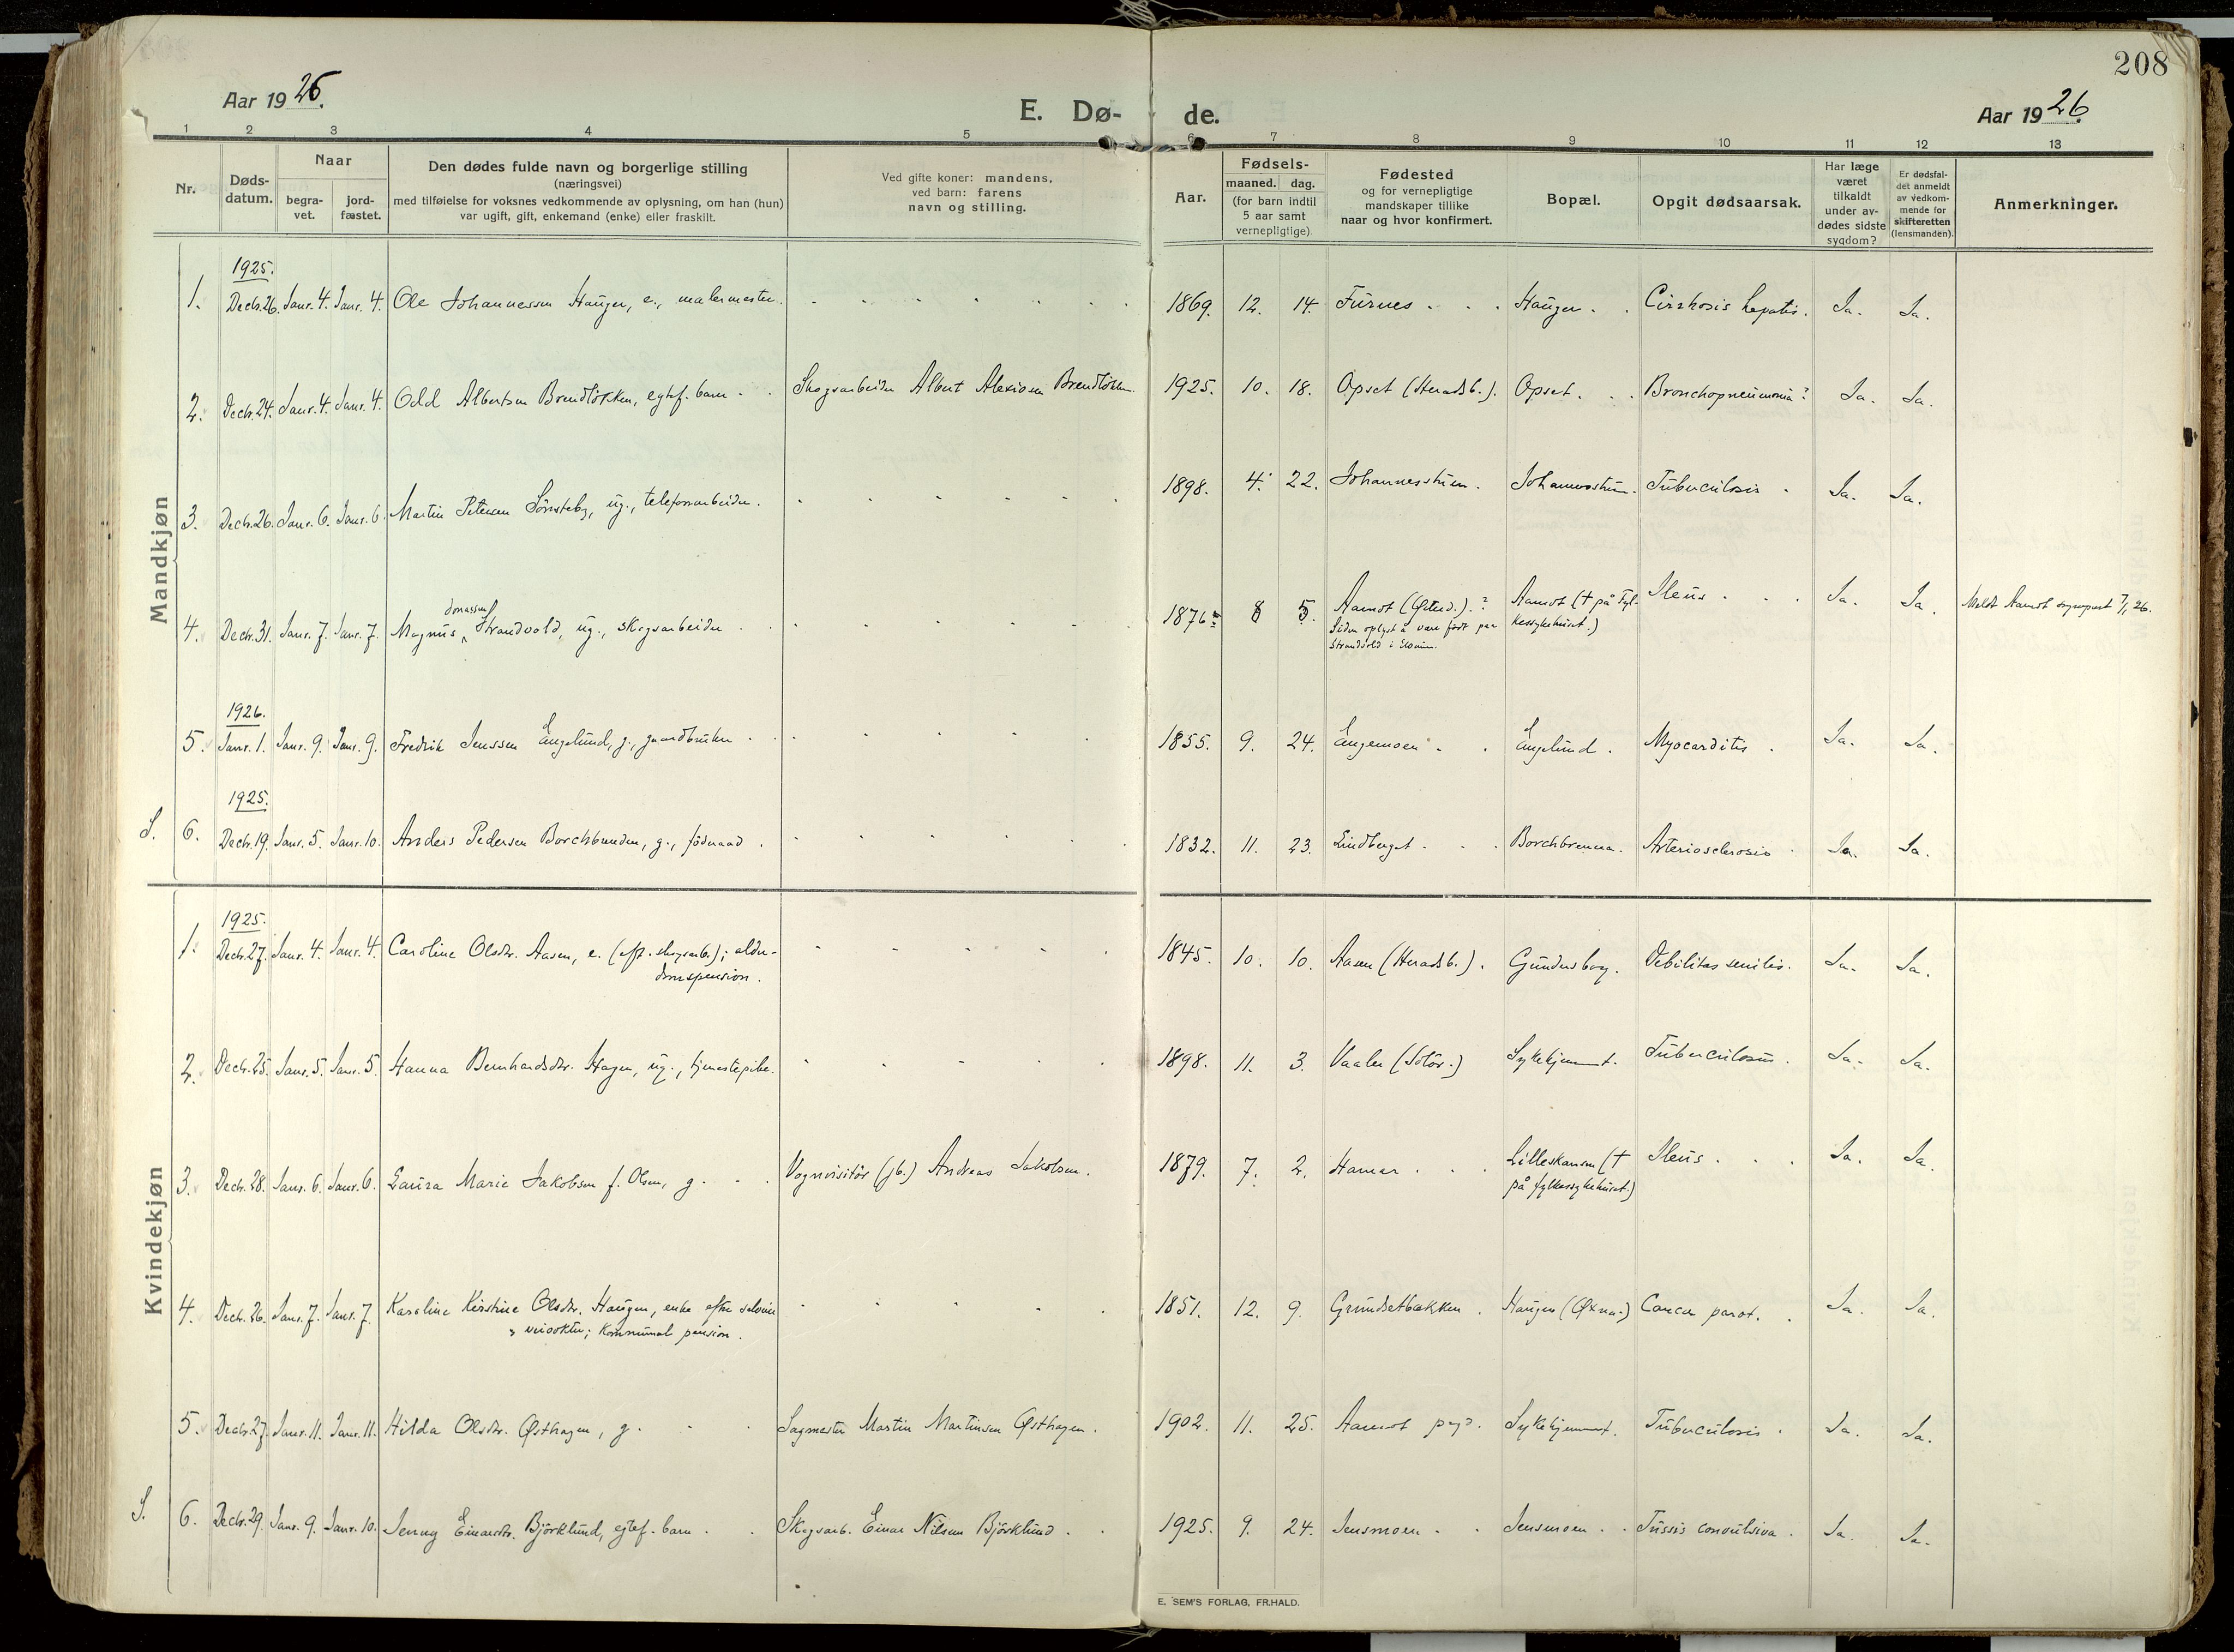 208
Aar 1926.
E. Dø- de.
Aar 1926.
1 2 3 4 5 6 7 8 9 10 11 12 13
Nr.
Døds-
datum.
Naar
begra-
vet.
jord-
fæstet.
Den dødes fulde navn og borgerlige stilling
(næringsvei)
med tilføielse for voksnes vedkommende av oplysning, om han (hun)
var ugift, gift, enkemand (enke) eller fraskilt.
Ved gifte koner: mandens,
ved barn: farens
navn og stilling.
Aar.
Fødsels-
maaned. dag.
(for barn indtil
5 aar samt
vernepligtige)
Fødested
og for vernepligtige
mandskaper tillike
naar og hvor konfirmert.
Bopæl.
Opgit dødsaarsak.
Har læge
været
tilkaldt
under av-
dødes sidste
sygdom?
Er dødsfal-
det anmeldt
av vedkom-
mende for
skifteretten
(lensmanden).
Anmerkninger.
Mandkjøn
1925.
1. Decbr. 26. Janr. 4. Janr. 4. Ole Johannessen Haugen, e., malermester. 1869. 12. 14. Furnes Haugen Cirrhosis hepatis. Ja. Ja.
2. Decbr. 24. Janr. 4. Janr. 4. Odd Albertsen Brendløkken, egtef. barn Skogsarbeider Albert Alexisen Brendløkken 1925. 10. 18. Opset (Heradsb.). Opset Bronchopneumonia? Ja. Ja.
3. Decbr. 26. Janr. 6. Janr. 6. Martin Petersen Sønsteby, ug., telefonarbeider. 1898. 4. 22. Johannesstuen. Johannesstuen. Tuberculosis Ja. Ja.
4. Decbr. 31. Janr. 7. Janr. 7. Magnus Jonassen Strandvold, ug., skogsarbeider 1876 8 5. Aamot (Østerd.).? Aamot († på fyl- Ileus Ja. Ja. Meldt Aamot sogneprest 7/1 26.
Siden oplyst å være født paa kessykehuset.)
Strandvold i
1926.
5. Janr. 1. Janr. 9. Janr. 9. Fredrik Jenssen Engelund, g., gaardbruker 1855. 9. 24. Engemoen Engelund. Myocarditis Ja. Ja.
1925.
S. 6. Decbr. 19. Janr. 5. Janr. 10. Anders Pedersen Borchbrenden, g., föderaad. 1832. 11. 23. Lindberget Borchbrenna. Arteriosclerosis Ja. Ja.
Kvindekjøn
1925.
1. Decbr. 27. Janr. 4. Janr. 4. Caroline Olsdtr. Aasen, e. (eft. skogsarb.); alder- 1845. 10. 10. Aasen (Heradsb.). Gundersborg. Debilitas senilis. Ja. Ja.
domspension.
2. Decbr. 25. Janr. 5. Janr. 5. Hanna Bernhardsdtr. Hagen, ug., tjenestepike. 1898. 11. 3. Vaaler (Solør.) Sykehjemmet. Tuberculosis. Ja. Ja.
3. Decbr. 28. Janr. 6. Janr. 6. Laura Marie Jakobsen f. Olsen, g. Vognvisitør (jb.) Andreas Jakobsen. 1879. 7. 2. Hamar Lilleskansen († Ileus Ja. Ja.
på fylkessykehuset.)
4. Decbr. 26. Janr. 7. Janr. 7. Karoline Kirstine Olsdtr. Haugen, enke efter 1851. 12. 9. Grundsetbakken. Haugen (Øxna.) Cancer parot. Ja. Ja.
veivokter; kommunal pension.
5. Decbr. 27. Janr. 11. Janr. 11. Hilda Olsdtr. Østhagen, g. Sagmester Martin Martinsen Østhagen. 1902. 11. 25. Aamot pgd. Sykehjemmet. Tuberculosis. Ja. Ja.
S. 6. Decbr. 29. Janr. 9. Janr. 10. Jenny Einarsdtr. Björklund, egtef. barn Skogsarb. Einar Nilsen Björklund 1925. 9. 24. Jensmoen Jensmoen Tussis convulsiva. Ja. Ja.
E. SEM'S FORLAG, FR.HALD.